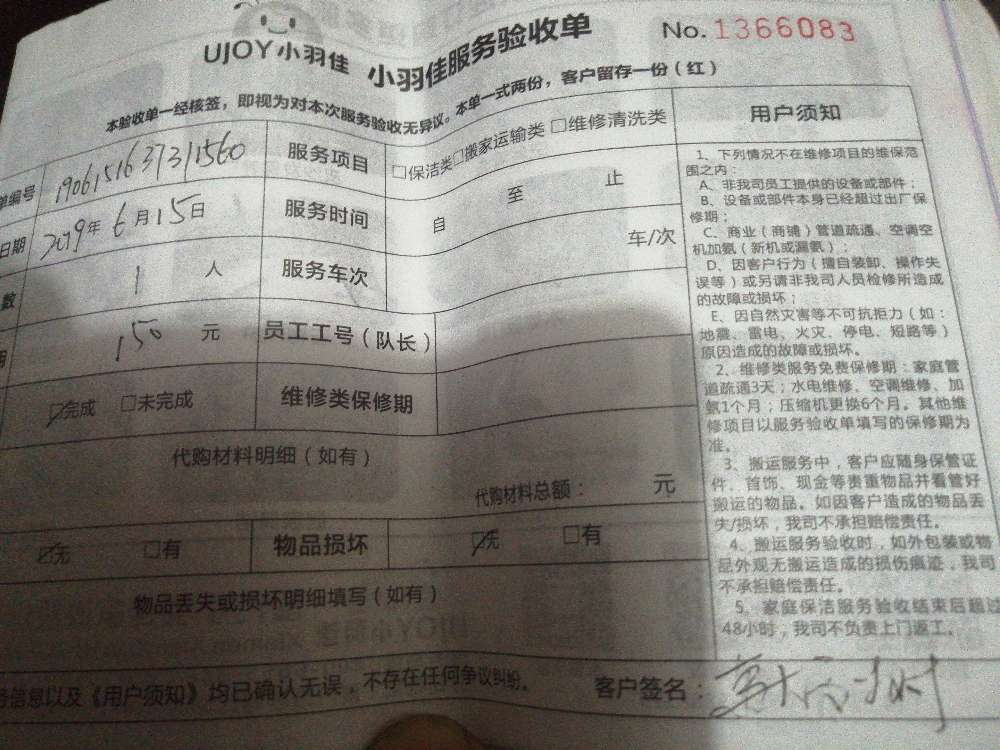 UJOY小羽佳 小羽佳服务验收单 No.1366083
本验收单一经核签，即视为对本次服务验收无异议。本单一式两份，客户留存一份（红）
单编号 服务项目 □保洁类□搬家运输类 □维修清洗类
日期 2019年6月15日 服务时间 自 至 止
数 1 人 服务车次 车/次
150 元 员工工号（队长）
☑完成 □未完成 维修类保修期
代购材料明细（如有）
代购材料总额： 元
☑无 □有 物品损坏 ☑无 □有
物品丢失或损坏明细填写（如有）
务信息以及《用户须知》均已确认无误，不存在任何争议纠纷。 客户签名：
用户须知
1、下列情况不在维修项目的维保范
围之内：
A、非我司员工提供的设备或部件；
B、设备或部件本身已经超过出厂保
修期；
C、商业（商铺）管道疏通、空调空
机加氨（新机或漏氨）；
D、因客户行为（擅自装卸、操作失
误等）或另请非我司人员检修所造成
的故障或损坏；
E、因自然灾害等不可抗拒力（如：
地震、雷电、火灾、停电、短路等）
原因造成的故障或损坏。
2、维修类服务免费保修期：家庭管
道疏通3天；水电维修、空调维修、加
氨1个月；压缩机更换6个月。其他维
修项目以服务验收单填写的保修期为
准。
3、搬运服务中，客户应随身保管证
件、首饰、现金等贵重物品并看管好
搬运的物品。如因客户造成的物品丢
失/损坏，我司不承担赔偿责任。
4、搬运服务验收时，如外包装或物
品外观无搬运造成的损伤痕迹，我司
不承担赔偿责任。
5、家庭保洁服务验收结束后超过
48小时，我司不负责上门返工。